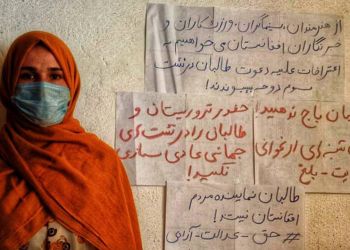 از هنرمندان، سینماگران، ورزشکاران و
خبرنگاران افغانستان می‌خواهیم به
اعتراضات علیه دعوت طالبان در نشست
سوم دوحه بپیوندند!
حضور تروریستان و
طالبان را در نشست‌های
جهانی عادی سازی
نکنید!
باج ندهید!
طالبان نماینده مردم
افغانستان نیست!
#حق-عدالت-آزادی